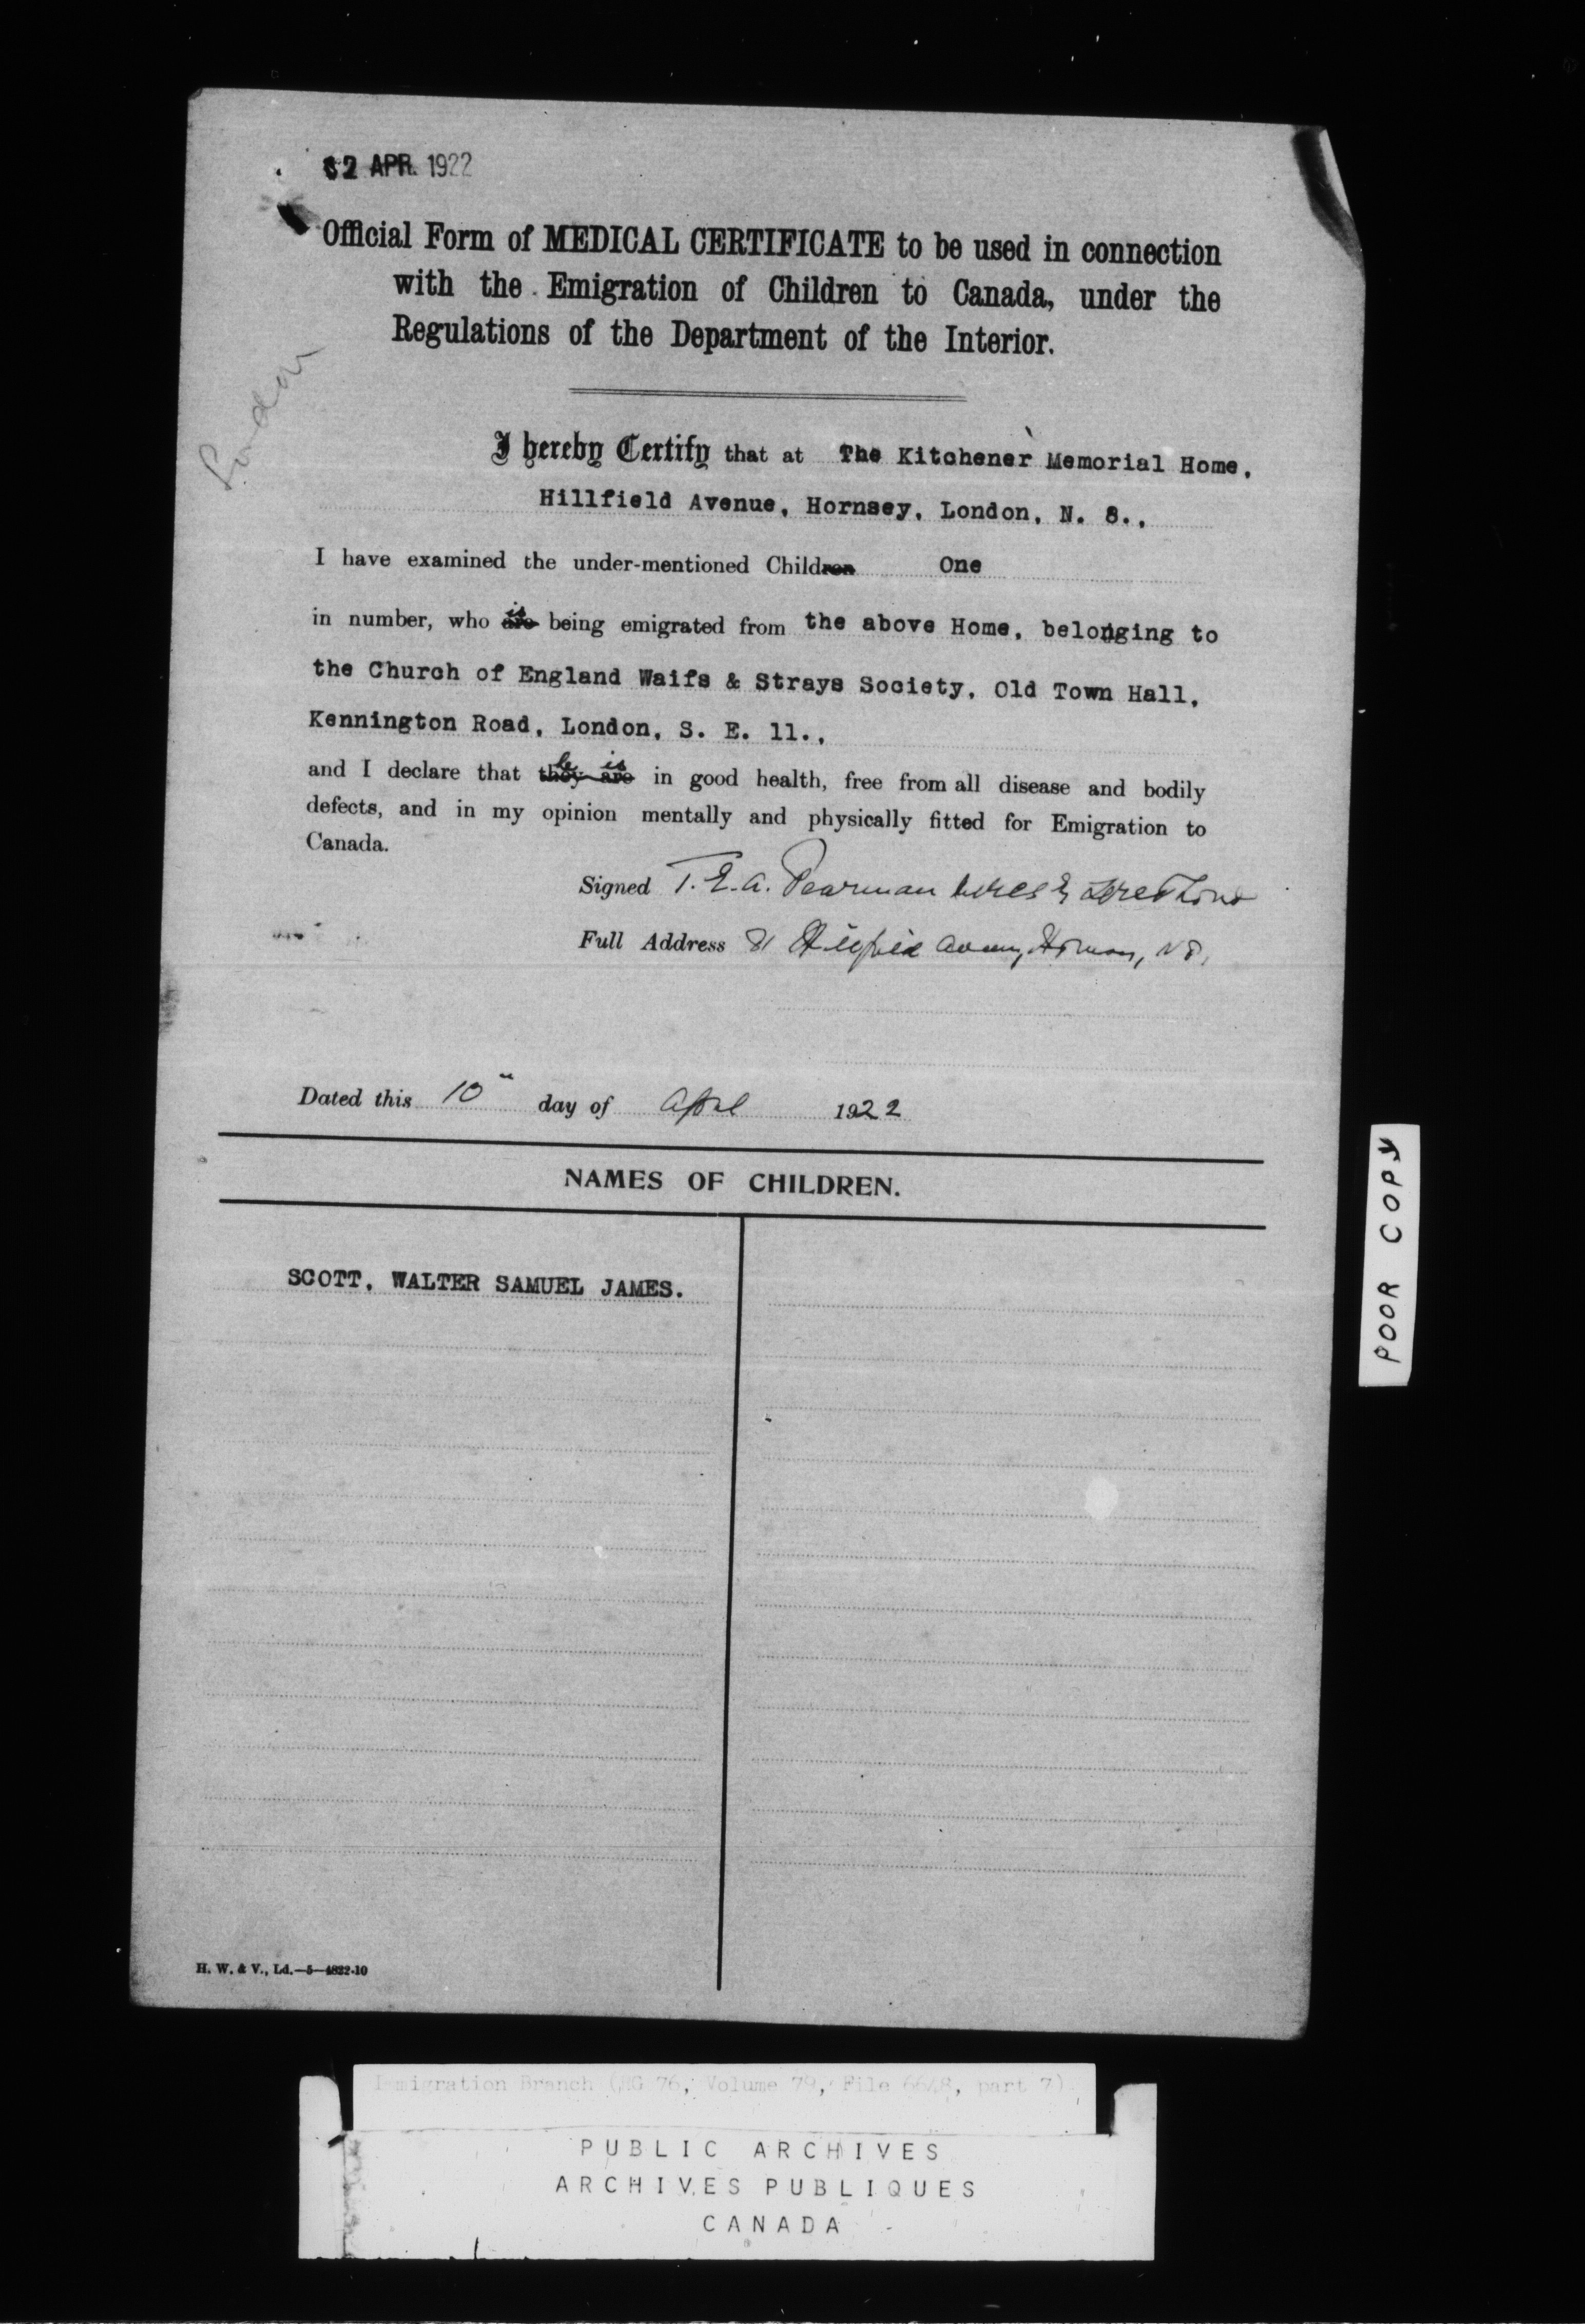 APR. 1922
Official Form of MEDICAL CERTIFICATE to be used in connection
with the Emigration of Children to Canada, under the
Regulations of the Department of the Interior.
I hereby Certify that at The Kitchener Memorial Home,
Hillfield Avenue, Hornsey, London, N. 8.,
I have examined the under-mentioned Children One
in number, who are is being emigrated from the above Home, belonging to
the Church of England Waifs & Strays Society, Old Town Hall,
Kennington Road, London, S. E. 11.,
and I declare that they are he is in good health, free from all disease and bodily
defects, and in my opinion mentally and physically fitted for Emigration to
Canada.
Signed T. E. A. Pearman
Full Address
Dated this 10 day of April 1922
NAMES OF CHILDREN.
SCOTT, WALTER SAMUEL JAMES.
H. W. & V., Ld.—5—4822-10
POOR COPY
Immigration Branch (RG 76, Volume 79, File 6648, part 7)
PUBLIC ARCHIVES
ARCHIVES PUBLIQUES
CANADA